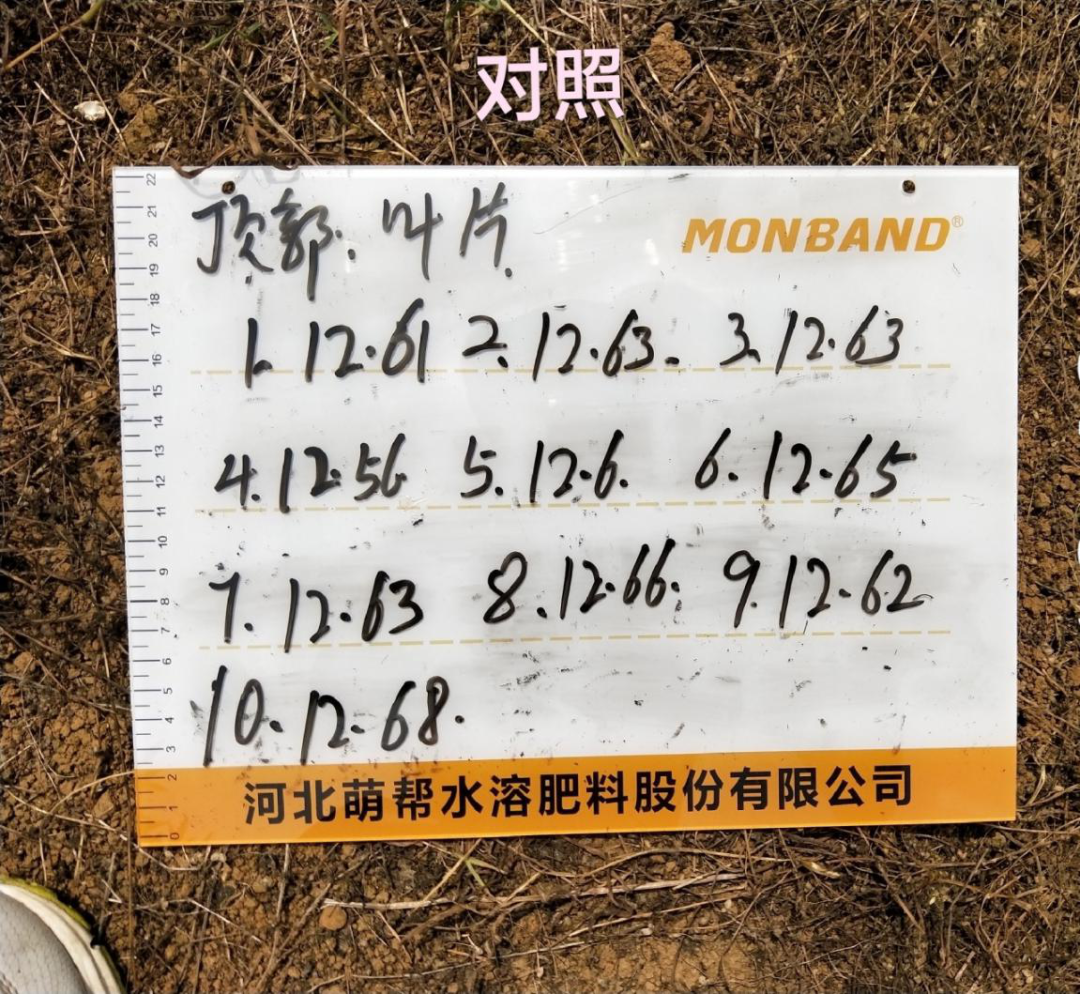 对照
顶部.叶片.
MONBAND®
1.12.61 2.12.63. 3.12.63
4.12.56 5.12.6. 6.12.65
7.12.63 8.12.66. 9.12.62
10.12.68.
河北萌帮水溶肥料股份有限公司
22
21
20
19
18
17
16
15
14
13
12
11
10
9
8
7
6
5
4
3
2
1
0